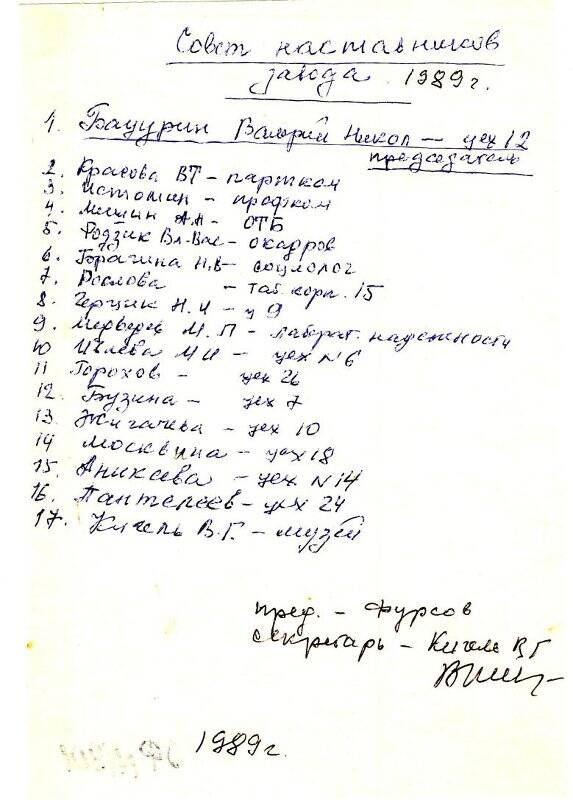 Совет наставников
завода 1989г.
1. Бацурин Валерий Никол — цех 12
председатель
2. Красова ВТ – партком
3. Истомин – профком
4. Мишин А.А – ОТБ
5. Родзик Вл-Вас – о.кадров
6. Горагина Н.В – социолог
7. Рослова – таб. корп. 15
8. Герцик Н. И – ц 9
9. М. П – лаборат. надежности
10 Ивлева М И – цех №6
11 Горохов – цех 26
12. Бузина – цех 7
13. Жигачева – цех 10
14 Москвина – цех 18
15. Аникеева – цех №14
16. Пантелеев – цех 24
17. Кигель В.Г. – музей
пред. – Фурсов
секретарь – Кигель ВГ
1989г.